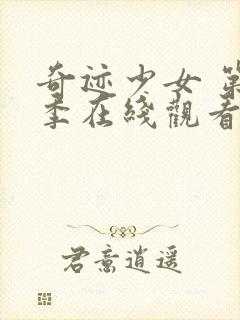 奇迹少女 第
季在线觀看
君意逍遥